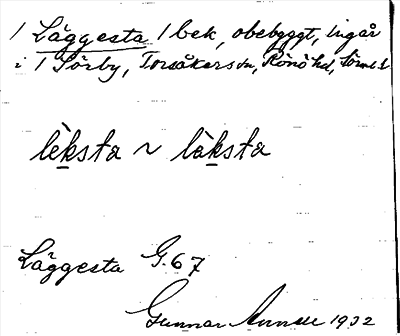 1 Läggesta 1 bek, obebyggt, ingår
i 1 Sörby, Torsåkers sn, Rönö hd, Sörml.
lèksta ~ làksta
Läggesta G.67
Gunnar 1932